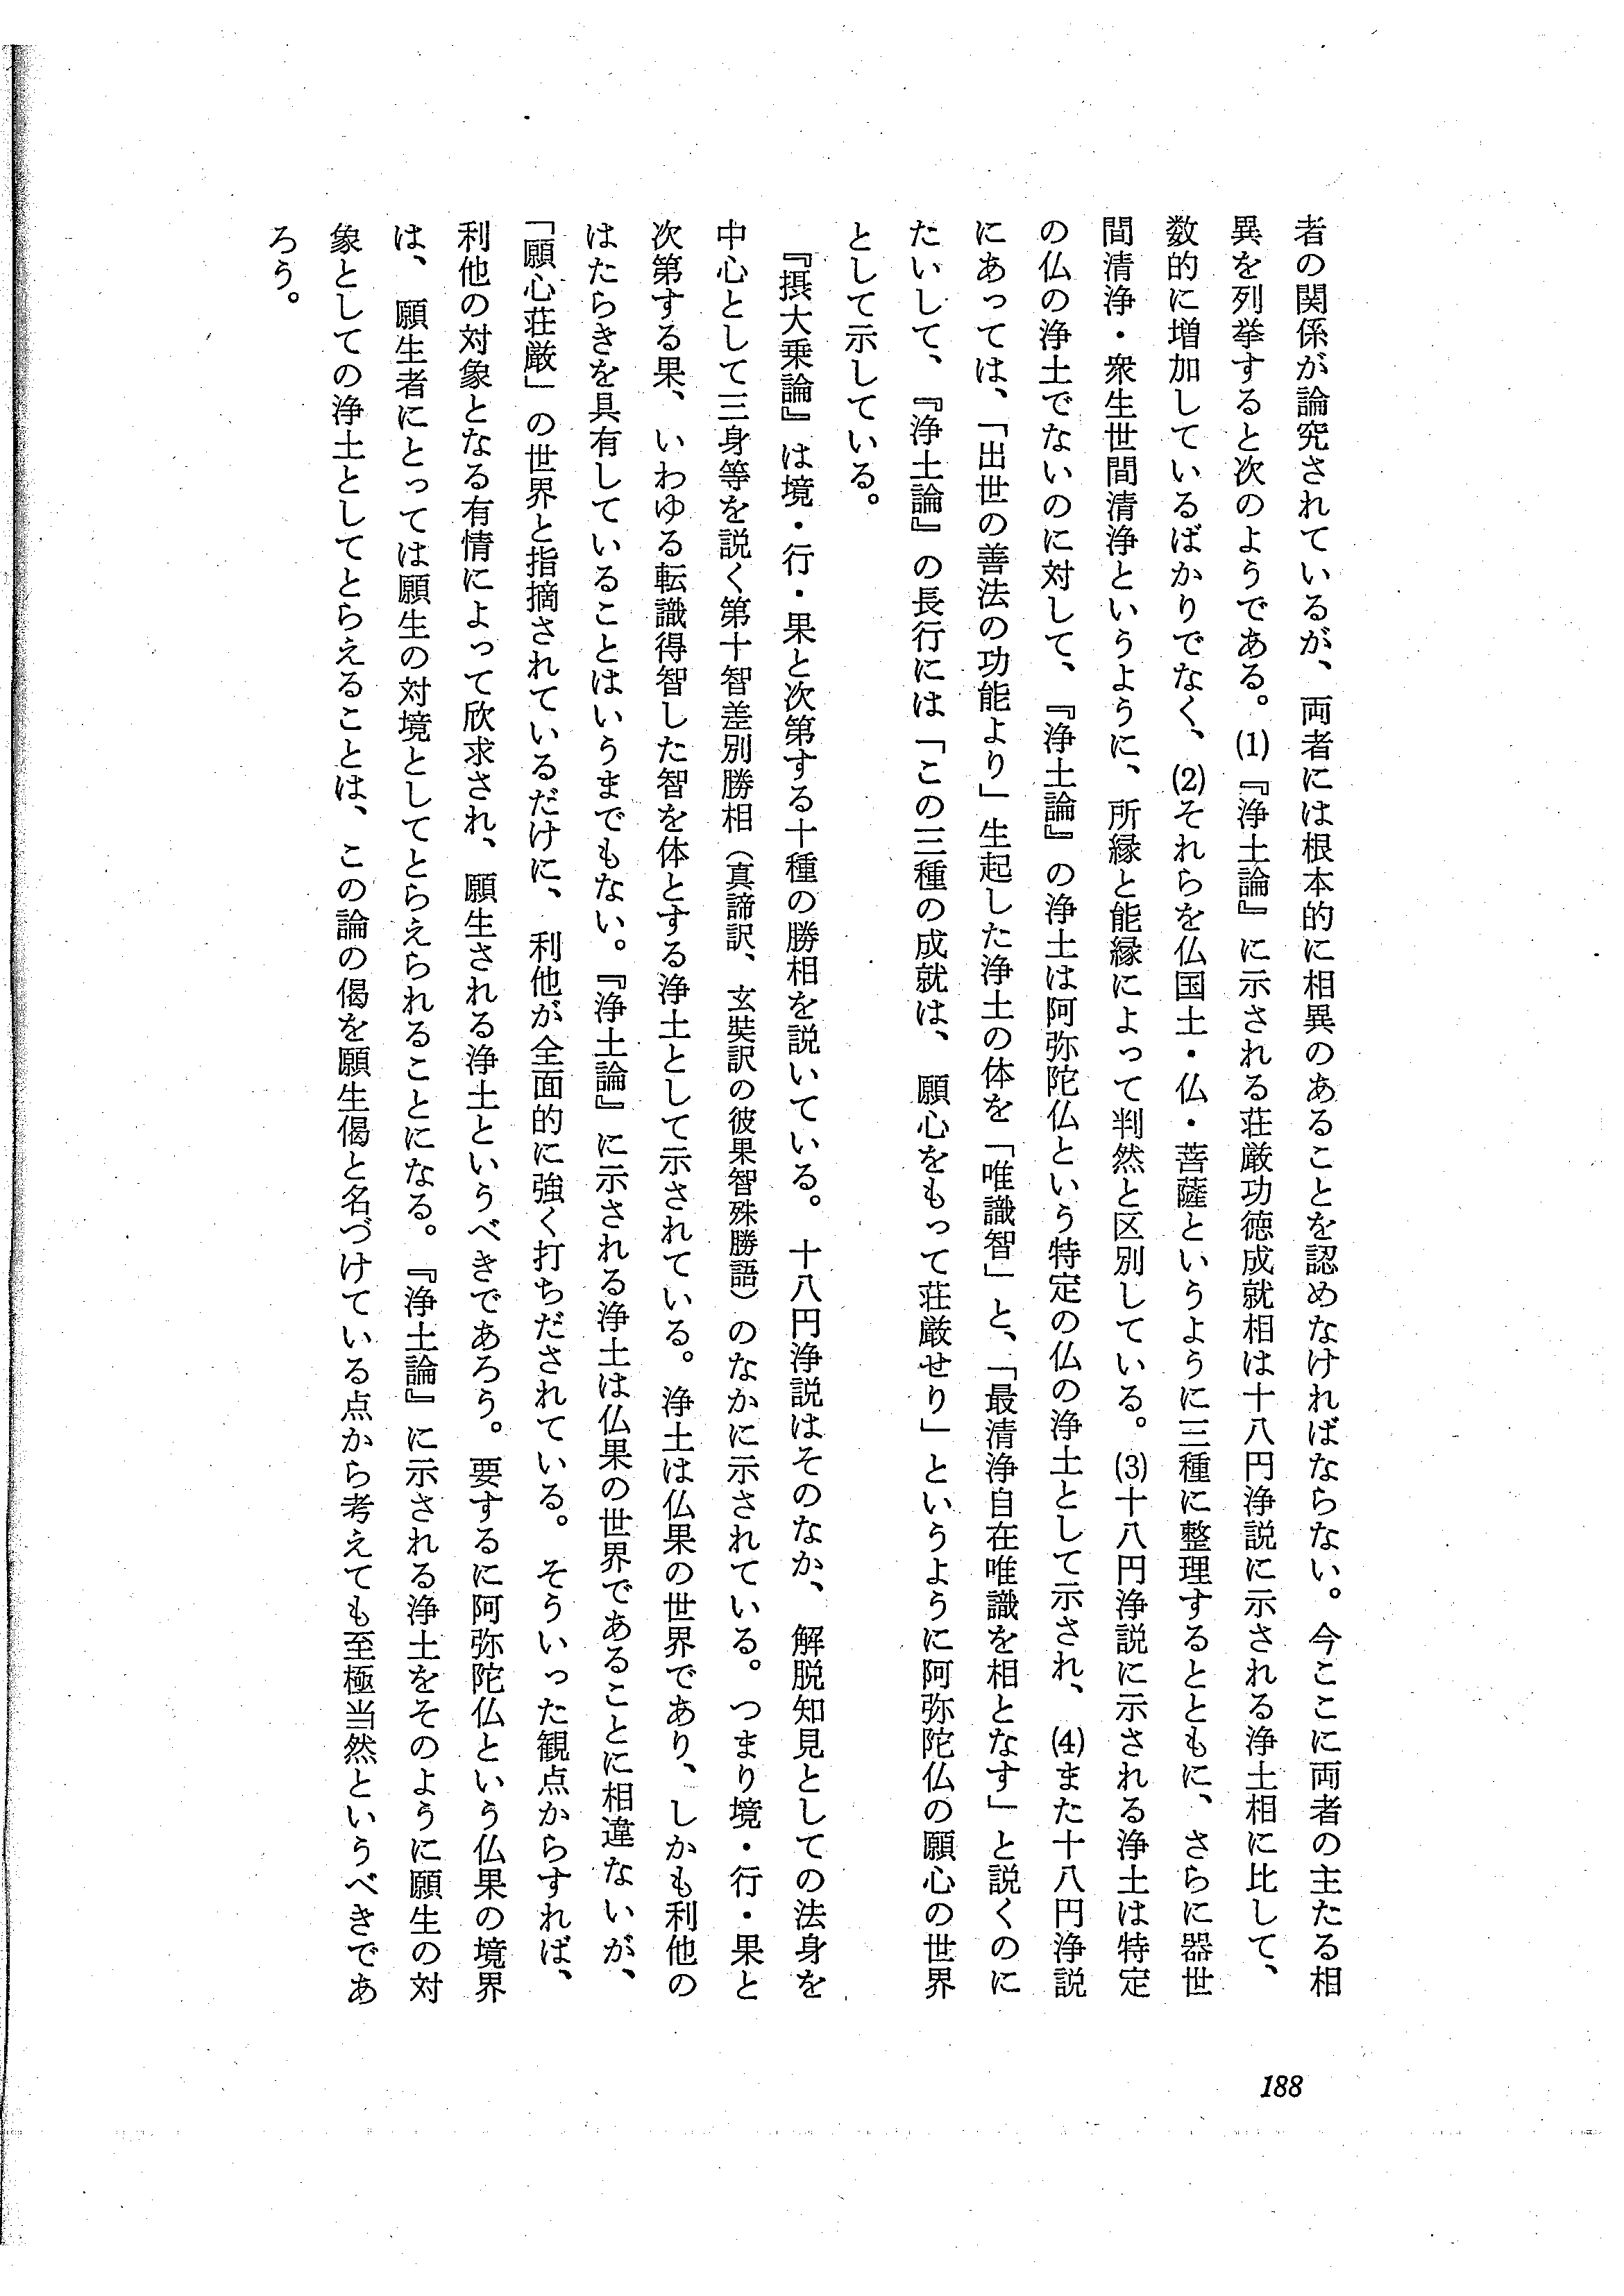 者の関係が論究されているが、両者には根本的に相異のあることを認めなければならない。今ここに両者の主たる相
異を列挙すると次のようである。(1)『浄土論』に示される荘厳功徳成就相は十八円浄説に示される浄土相に比して、
数的に増加しているばかりでなく、(2)それらを仏国土・仏・菩薩というように三種に整理するとともに、さらに器世
間清浄・衆生世間清浄というように、所縁と能縁によって判然と区別している。(3)十八円浄説に示される浄土は特定
の仏の浄土でないのに対して、『浄土論』の浄土は阿弥陀仏という特定の仏の浄土として示され、(4)また十八円浄説
にあっては、「出世の善法の功能より」生起した浄土の体を「唯識智」と、「最清浄自在唯識を相となす」と説くのに
たいして、『浄土論』の長行には「この三種の成就は、願心をもって荘厳せり」というように阿弥陀仏の願心の世界
として示している。
『摂大乗論』は境・行・果と次第する十種の勝相を説いている。十八円浄説はそのなか、解脱知見としての法身を
中心として三身等を説く第十智差別勝相（真諦訳、玄奘訳の彼果智殊勝語）のなかに示されている。つまり境・行・果と
次第する果、いわゆる転識得智した智を体とする浄土として示されている。浄土は仏果の世界であり、しかも利他の
はたらきを具有していることはいうまでもない。『浄土論』に示される浄土は仏果の世界であることに相違ないが、
「願心荘厳」の世界と指摘されているだけに、利他が全面的に強く打ちだされている。そういった観点からすれば、
利他の対象となる有情によって欣求され、願生される浄土というべきであろう。要するに阿弥陀仏という仏果の境界
は、願生者にとっては願生の対境としてとらえられることになる。『浄土論』に示される浄土をそのように願生の対
象としての浄土としてとらえることは、この論の偈を願生偈と名づけている点から考えても至極当然というべきであ
ろう。
188